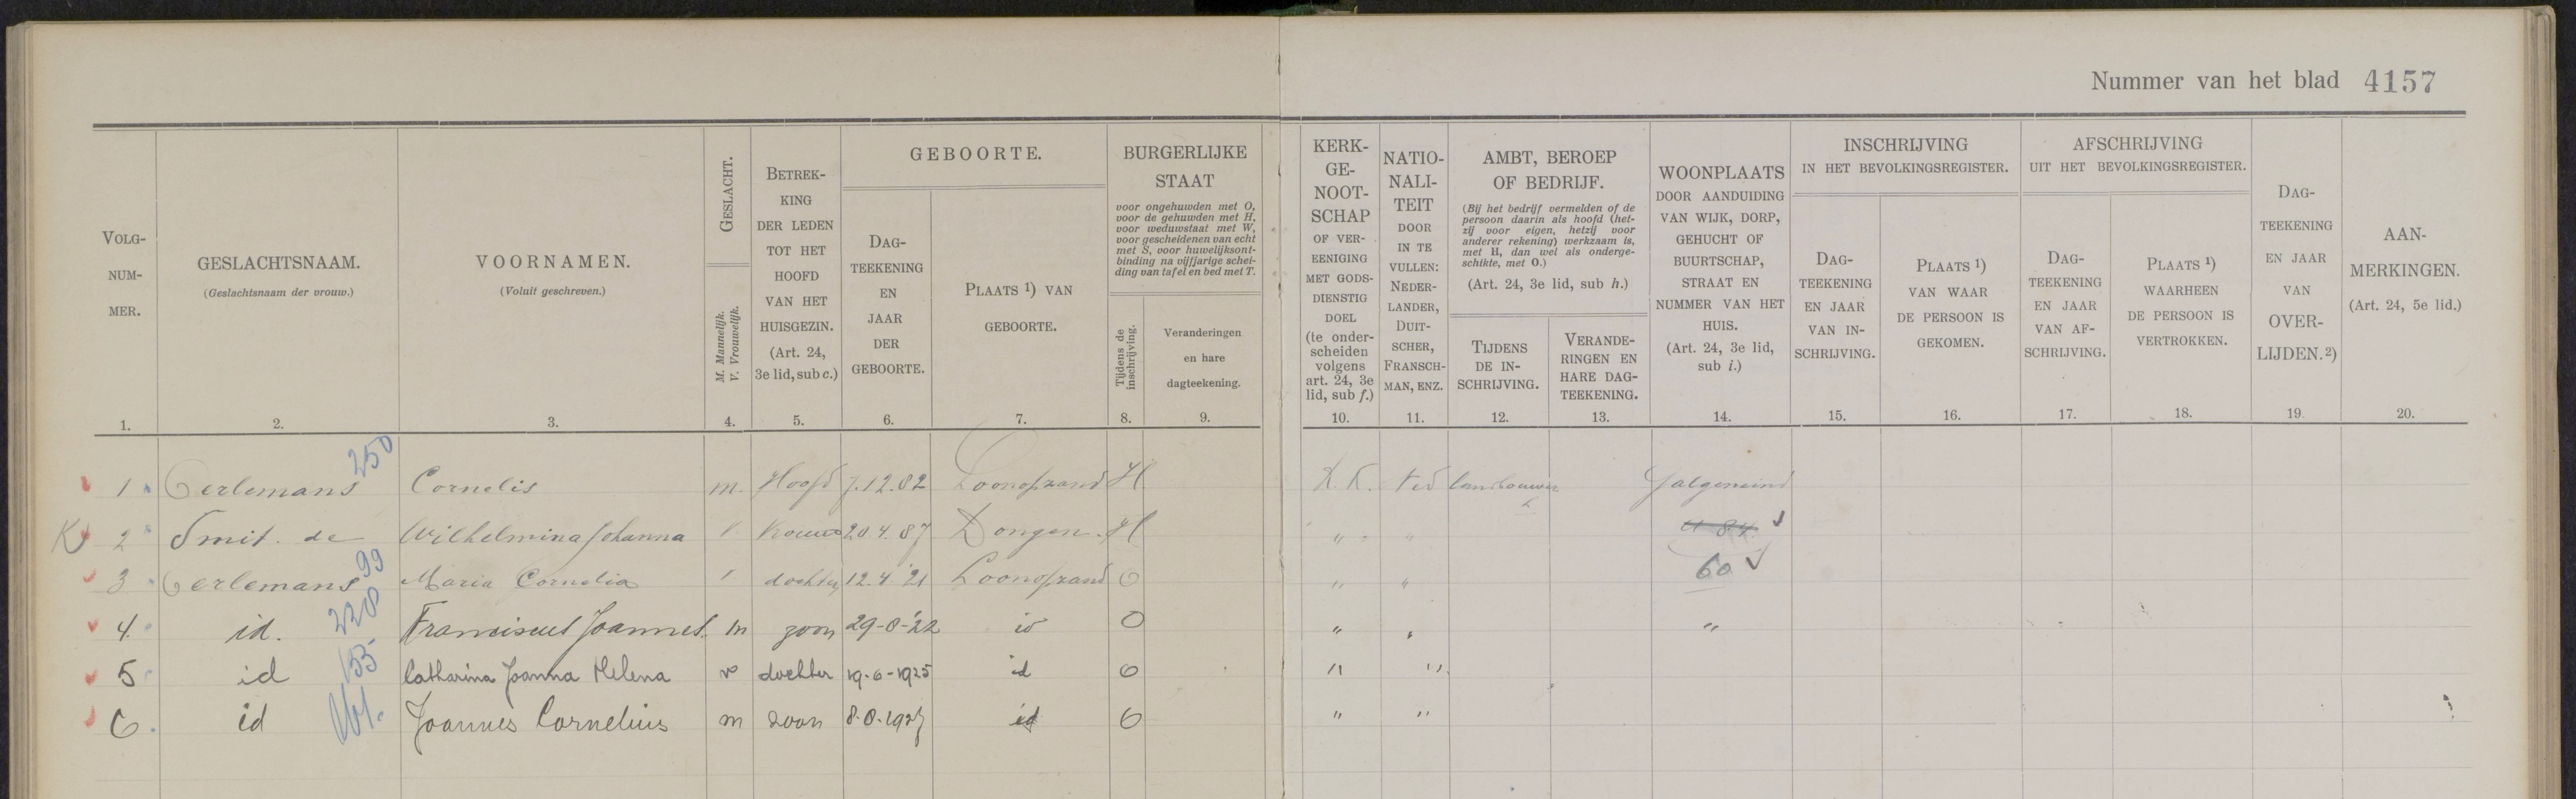 Nummer van het blad 4157
VOLG-NUM-MER.
GESLACHTSNAAM.
(Geslachtsnaam der vrouw.)
VOORNAMEN.
(Voluit geschreven.)
GESLACHT.
M. Mannelijk.
V. Vrouwelijk.
BETREK-KING DER LEDEN TOT HET HOOFD VAN HET HUISGEZIN.
(Art. 24, 3e lid, sub c.)
GEBOORTE.
DAG-TEEKENING EN JAAR DER GEBOORTE.
PLAATS 1) VAN GEBOORTE.
BURGERLIJKE STAAT
voor ongehuwden met O,
voor de gehuwden met H,
voor weduwstaat met W,
voor gescheidenen van echt
met S, voor huwelijksont-
binding na vijfjarige schei-
ding van tafel en bed met T.
Tijdens de inschrijving.
Veranderingen en hare dagteekening.
KERK-GE-NOOT-SCHAP OF VER-EENIGING MET GODS-DIENSTIG DOEL
(te onder-scheiden volgens art. 24, 3e lid, sub f.)
NATIO-NALI-TEIT DOOR IN TE VULLEN: NEDER-LANDER, DUIT-SCHER, FRANSCH-MAN, ENZ.
AMBT, BEROEP OF BEDRIJF.
(Bij het bedrijf vermelden of de
persoon daarin als hoofd (het-
zij voor eigen, hetzij voor
anderer rekening) werkzaam is,
met H, dan wel als onderge-
schikte, met O.)
(Art. 24, 3e lid, sub h.)
TIJDENS DE IN-SCHRIJVING.
VERANDE-RINGEN EN HARE DAG-TEEKENING.
WOONPLAATS DOOR AANDUIDING VAN WIJK, DORP, GEHUCHT OF BUURTSCHAP, STRAAT EN NUMMER VAN HET HUIS.
(Art. 24, 3e lid, sub i.)
INSCHRIJVING IN HET BEVOLKINGSREGISTER.
DAG-TEEKENING EN JAAR VAN IN-SCHRIJVING.
PLAATS 1) VAN WAAR DE PERSOON IS GEKOMEN.
AFSCHRIJVING UIT HET BEVOLKINGSREGISTER.
DAG-TEEKENING EN JAAR VAN AF-SCHRIJVING.
PLAATS 1) WAARHEEN DE PERSOON IS VERTROKKEN.
DAG-TEEKENING EN JAAR VAN OVER-LIJDEN. 2)
AAN-MERKINGEN.
(Art. 24, 5e lid.)
1. 2. 3. 4. 5. 6. 7. 8. 9. 10. 11. 12. 13. 14. 15. 16. 17. 18. 19. 20.
250
1 Oerlemans Cornelis m. Hoofd 7.12.82 Loonopzand H R.K. Ned landbouwer
2 Smit. de Wilhelmina Johanna 20.4.87 Dongen. H " " a 84
99
3 Oerlemans Maria Cornelia dochter 12.4.'21 Loonopzand O " " 60
220
4. id. Franciscus Joannes. m zoon 29-8-'22 id O " " "
155
5 id Catharina Joanna Helena v dochter 19-6-1925 id O " "
6. id Joannes Cornelius m zoon 8-8-1927 id O " "